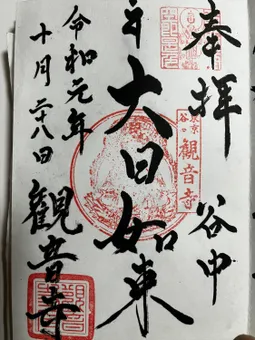 奉拝 谷中
大日如来
令和元年
十月二十八日 観音寺
東京
谷中
観音寺